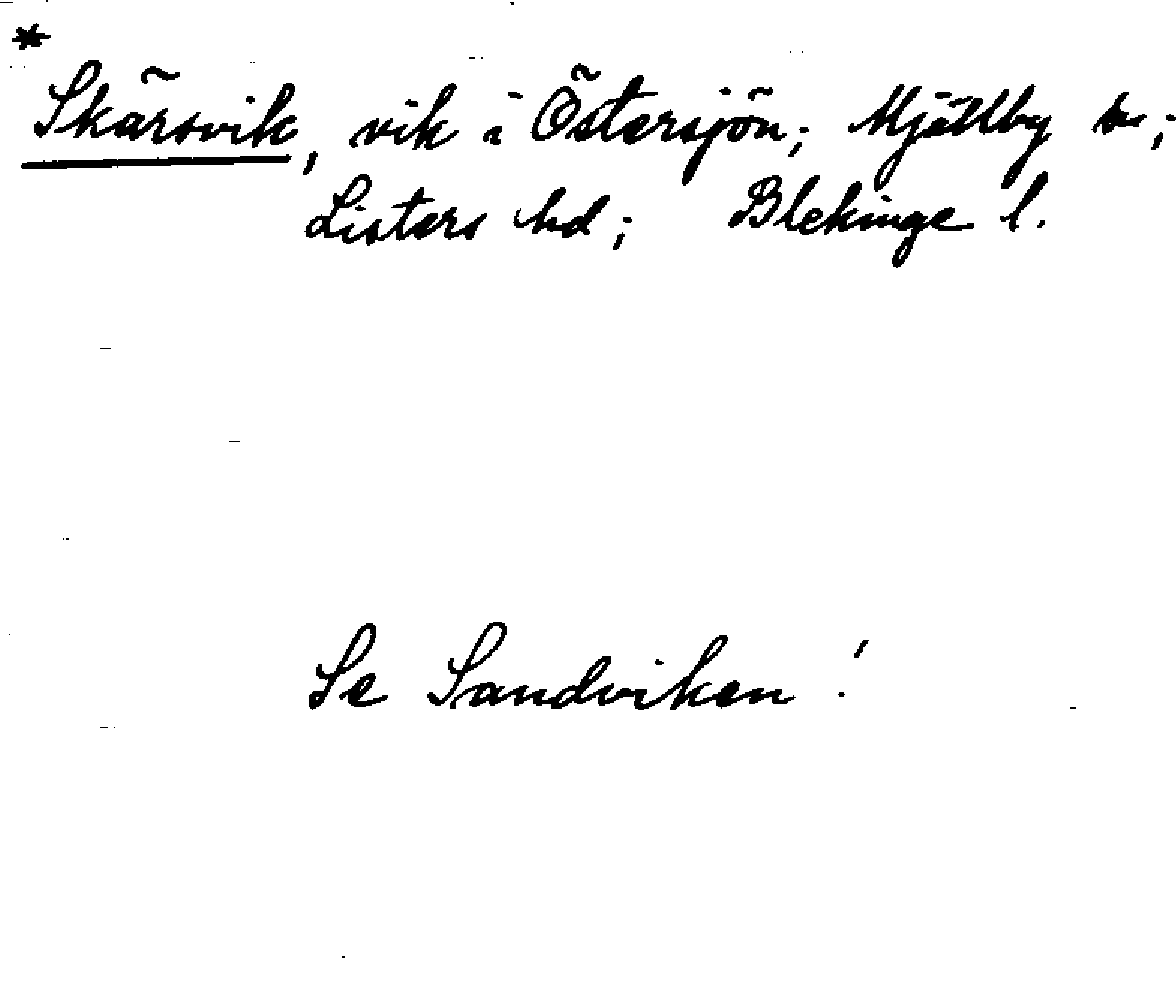 * Skärsvik, vik i Östersjön; Mjällby sn;
Listers hd; Blekinge l.
Se Sandviken!